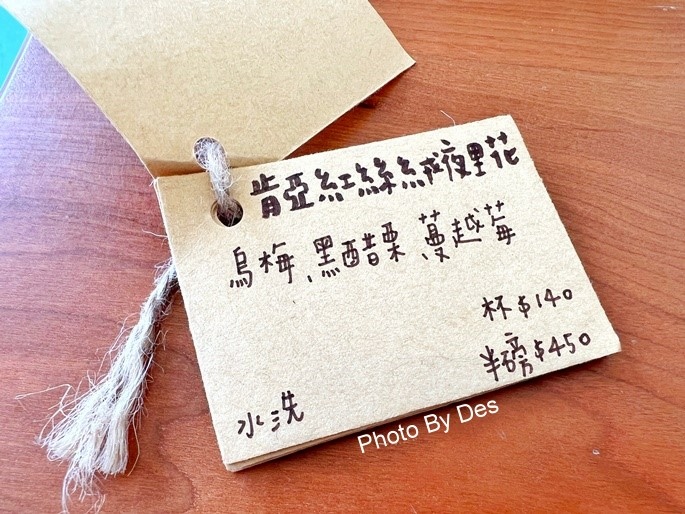 肯亞紅絲絨夜里花
烏梅、黑醋栗 蔓越莓
杯$140
半磅$450
水洗
Photo By Des